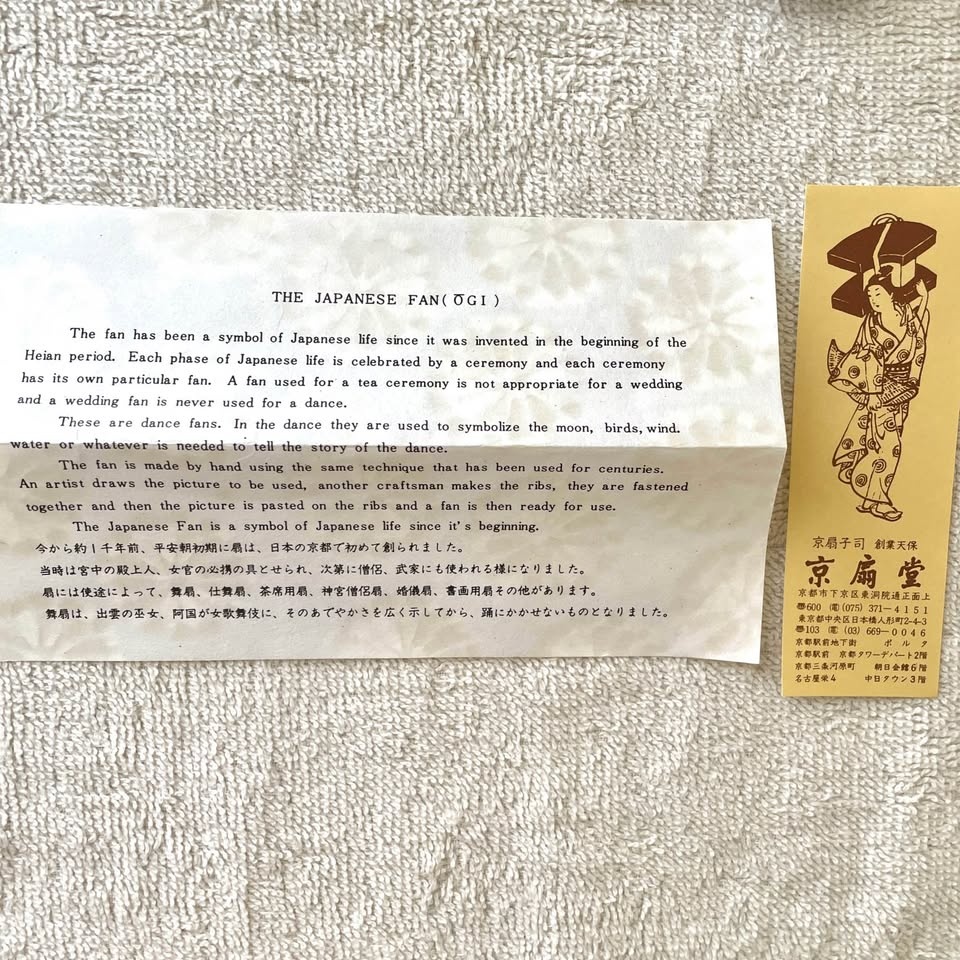 THE JAPANESE FAN(ŌGI)
The fan has been a symbol of Japanese life since it was invented in the beginning of the
Heian period. Each phase of Japanese life is celebrated by a ceremony and each ceremony
has its own particular fan. A fan used for a tea ceremony is not appropriate for a wedding
and a wedding fan is never used for a dance.
These are dance fans. In the dance they are used to symbolize the moon, birds, wind.
water or whatever is needed to tell the story of the dance.
The fan is made by hand using the same technique that has been used for centuries.
An artist draws the picture to be used, another craftsman makes the ribs, they are fastened
together and then the picture is pasted on the ribs and a fan is then ready for use.
The Japanese Fan is a symbol of Japanese life since it's beginning.
今から約1千年前、平安朝初期に扇は、日本の京都で初めて創られました。
当時は宮中の殿上人、女官の必携の具とせられ、次第に僧侶、武家にも使われる様になりました。
扇には使途によって、舞扇、仕舞扇、茶席用扇、神宮僧侶扇、婚儀扇、書画用扇その他があります。
舞扇は、出雲の巫女、阿国が女歌舞伎に、そのあでやかさを広く示してから、踊にかかせないものとなりました。
京扇子司 創業天保
京扇堂
京都市下京区東洞院通正面上
〠600 電(075)371-4151
東京都中央区日本橋人形町2-4-3
〠103 電(03)669-0046
京都駅前地下街 ポルタ
京都駅前 京都タワーデパート2階
京都三条河原町 朝日会館6階
名古屋栄4 中日タウン3階